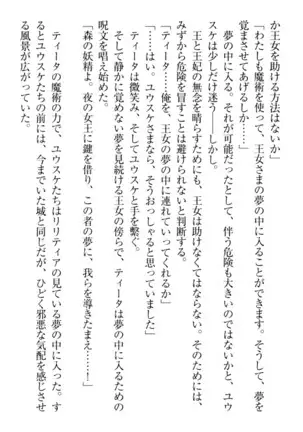 か王女を助ける方法はないか
「わたしも魔術を使って、王女さまの夢の中に入ることができます。そうして、夢を
覚まさせてあげるしか……」
夢の中に入る。それが可能だったとして、伴う危険も大きいのではないかと、ユウ
スケは少しだけ迷う――しかし。
王と王妃の無念を晴らすためにも、王女は助けなくてはならない。そのためには、
みずから危険を冒すことは避けられないと判断する。
「ティータ……俺を、王女の夢の中に連れていってくれるか」
「……はい。ユウスケさまなら、そうおっしゃると思っていました」
ティータは微笑み、そしてユウスケと手を繋ぐ。
そして静かに覚めない夢を見続ける王女の傍らで、ティータは夢の中に入るための
呪文を唱え始めた。
「森の妖精よ。夜の女王に鍵を借り、この者の夢に、我らを導きたまえ……」
ティータの魔術の力で、ユウスケたちはリリティアの夢の中に入った。す
るとユウスケたちの前には、今までいた城と同じだが、ひどく邪悪な気配を感じさせ
る風景が広がっていた。